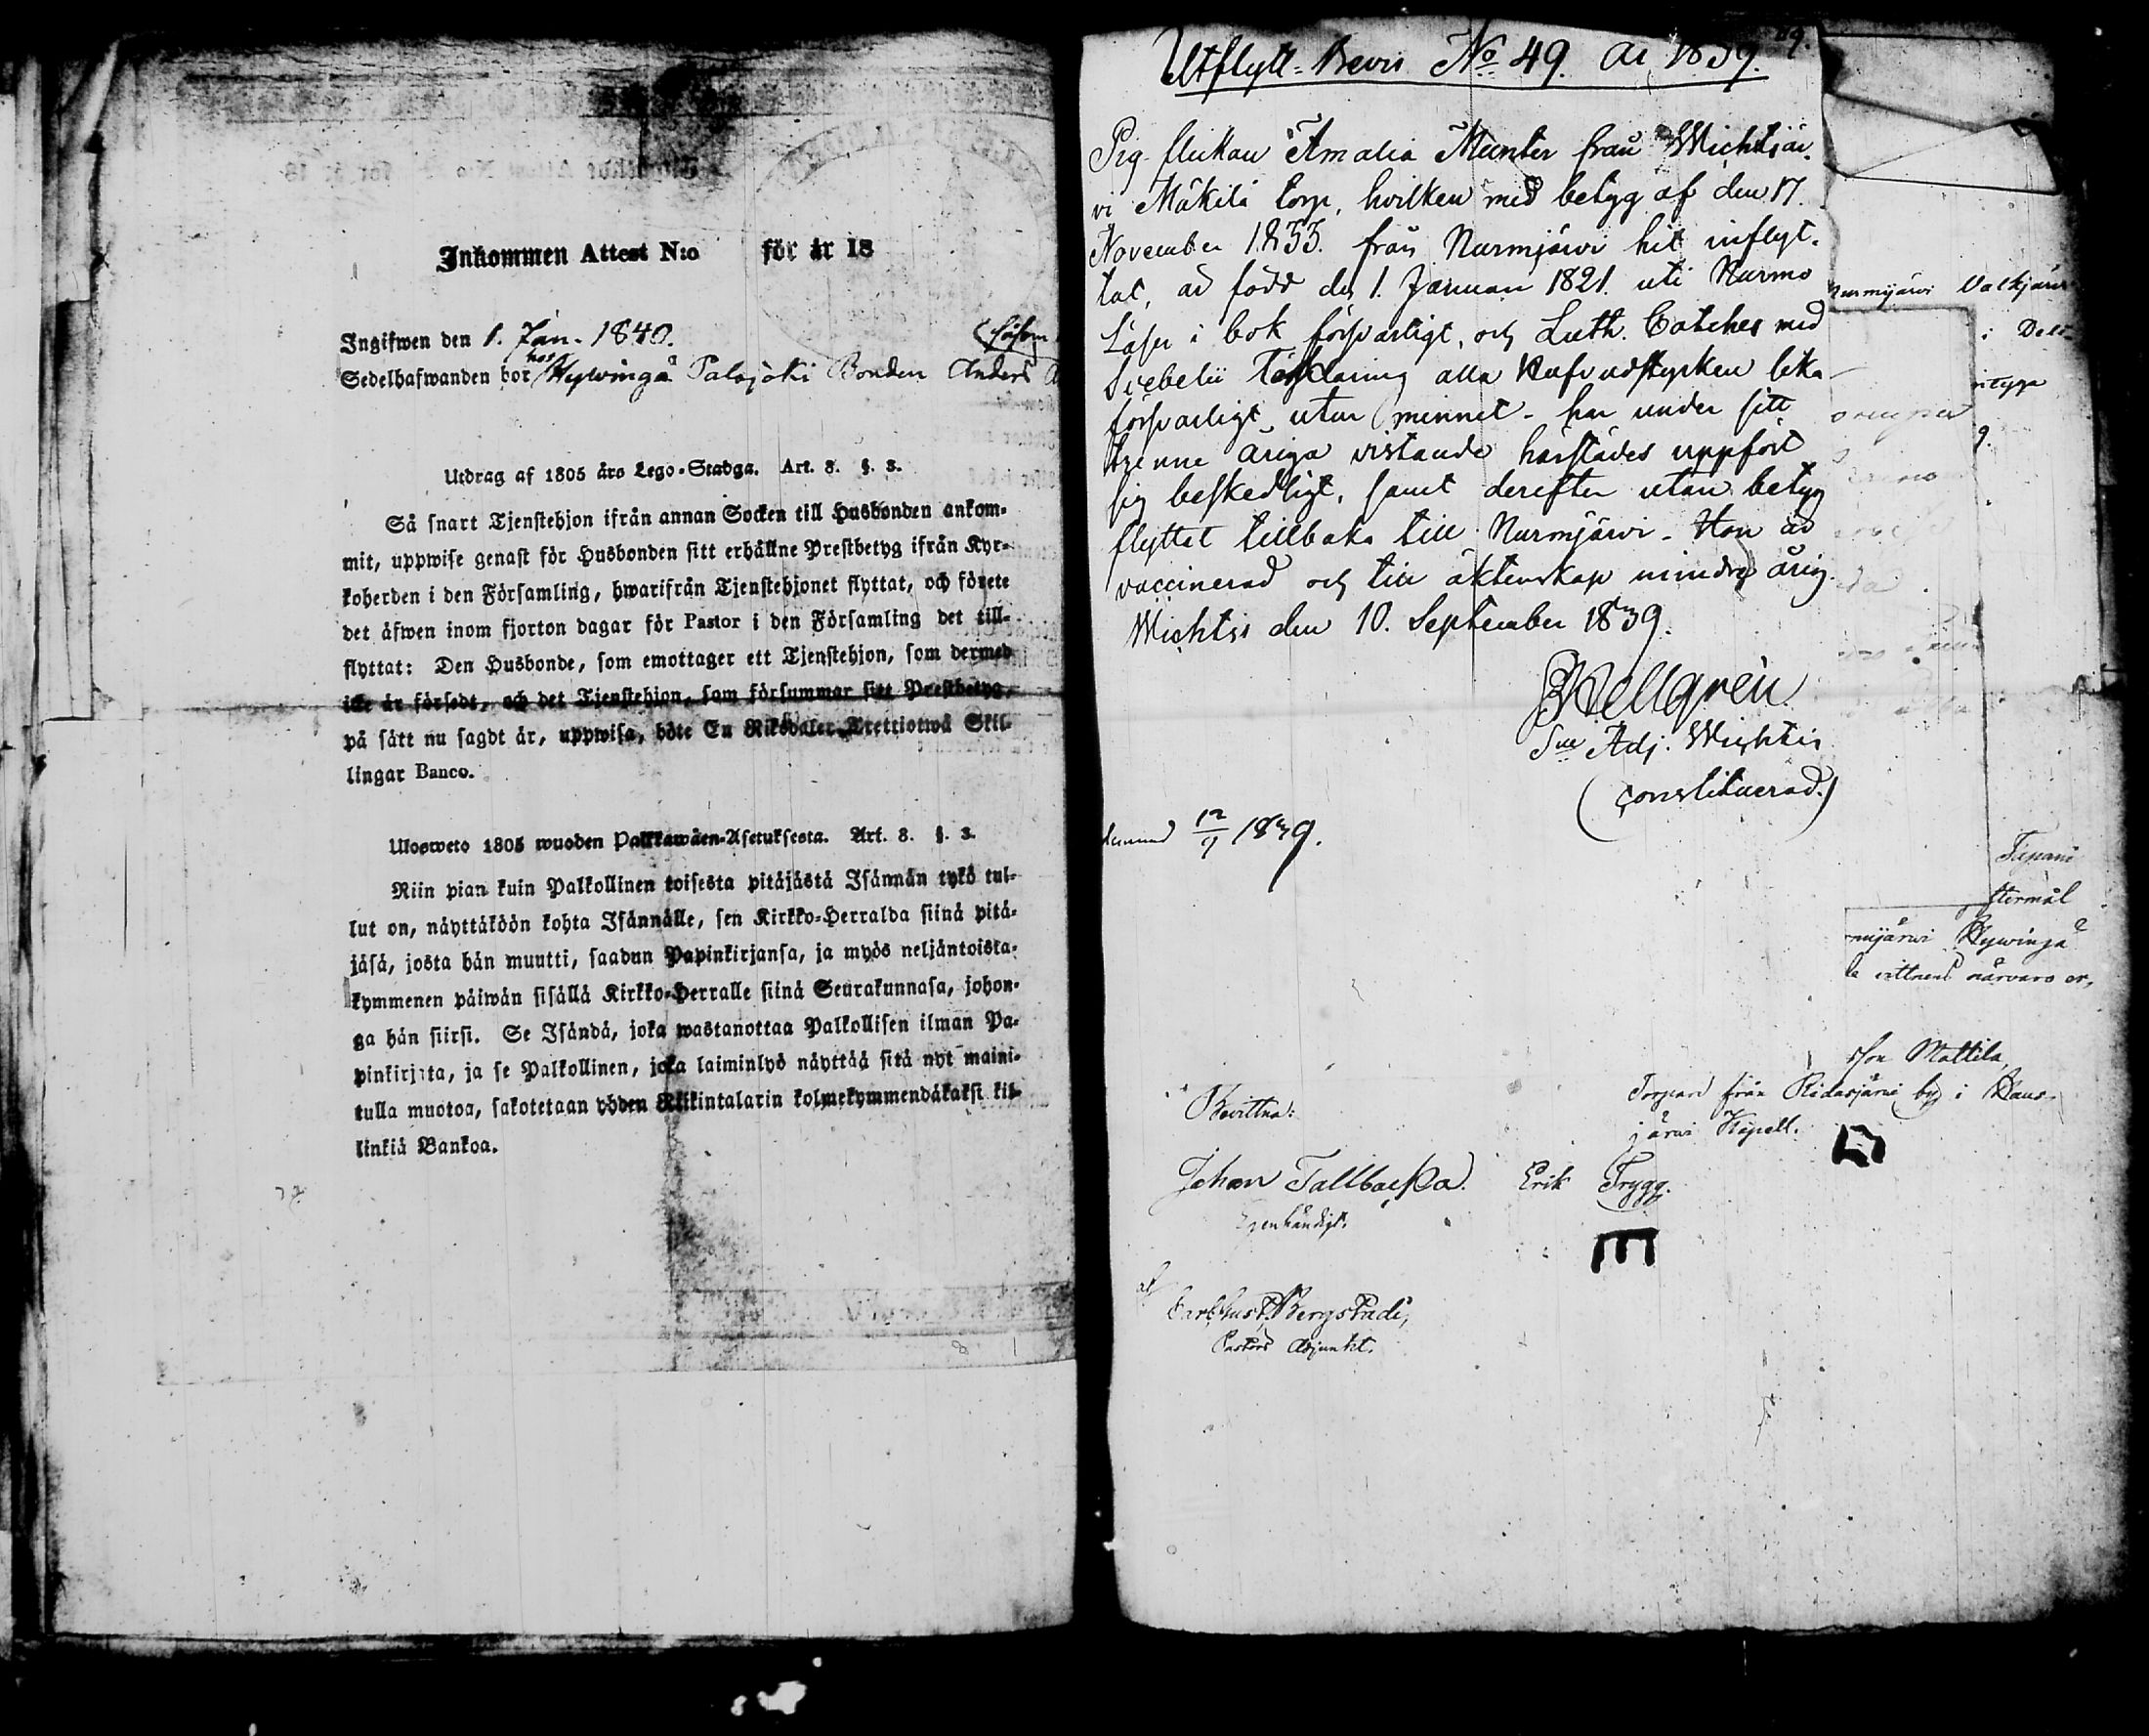 Inkommen Attest N:o för år 18
Ingifwen den 1. Jan. 1840. (såsom
Sedelhafwanden bor hos Hywingå Palojoki Bonden Anders
Utdrag af 1805 års Lego-Stadga. Art. 8. §. 3.
Så snart Tjenstehjon ifrån annan Socken till Husbonden ankom-
mit, uppwise genast för Husbonden sitt erhållne Prestbetyg ifrån Kyr-
koherden i den Församling, hwarifrån Tjenstehjonet flyttat, och förete
det äfwen inom fjorton dagar för Pastor i den Församling det till-
flyttat: Den Husbonde, som emottager ett Tjenstehjon, som dermed
icke är försedt, och det Tjenstehjon, som försummar sitt Prestbetyg,
på sätt nu sagdt är, uppwisa, böte En Riksdaler Trettiotwå Skil-
lingar Banco.
Ulosweto 1805 wuoden Palkkawäen-Asetuksesta. Art. 8. §. 3.
Niin pian kuin Palkollinen toisesta pitäjästä Isännän tykö tul-
lut on, näyttäköön kohta Isännälle, sen Kirkko-Herralda siinä pitä-
jäsä, josta hän muutti, saadun Papinkirjansa, ja myös neljäntoista-
kymmenen päiwän sisällä Kirkko-Herralle siinä Seurakunnasa, johon-
ga hän siirsi. Se Isändä, joka wastanottaa Palkollisen ilman Pa-
pinkirjata, ja se Palkollinen, joka laiminlyö näyttää sitä nyt maini-
tulla muotoa, sakotetaan yhden Riikintalarin kolmekymmendäkaksi kil-
linkiä Bankoa.
Utflytt-Bevis No 49. År 1839.
Pig flickan Amalia Munter från Wichtijär-
vi Mäkilä torp, hvilken med betyg af den 17.
November 1835. från Nurmjärvi hit inflyt-
tat, är född den 1. Januari 1821. uti Nurmo
Läser i bok försvarligt, och Luth. Catches med
Svebelii förklaring alla Hufvudstycken lika
försvarligt utur minnet - har under sitt
trenne åriga vistande härstädes uppfört
sig beskedligt, samt derefter utan betyg
flyttat tillbaka till Nurmjärvi - Hon är
vaccinerad och till äktenskap mindre årig.
Wichtis den 10. September 1839.
Hellgrén
Adj. Wichtis
(constituerad.)
12/9 1839.
Nurmijärvi Valkjärvi
rmijärvi Hywingå
la vittnens närvaro er,
Mattila,
Torpare från Ridasjärvi by i Haus-
järvi Kapell.
Bevittna:
Johan Tallbacka. Erik Trygg.
Egenhändigt.
af
Carl Gust. Bergstadi,
Pastors Adjunkt.